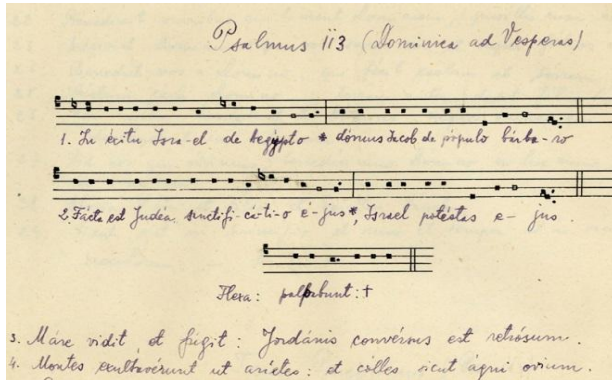 Psalmus 113 (Dominica ad Vesperas)
1. In éxitu Isra-el de Aegýpto * dómus Jacob de pópulo bárba-ro
2. Fácta est Judéa sanctifi-cá-ti-o é-jus *, Israel potéstas e-jus.
Flexa: palpabunt: †
3. Máre vidit, et fúgit: Jordánis convérsus est retrósum.
4. Montes exultavérunt ut aríetes: et cólles sicut ágni ovium.